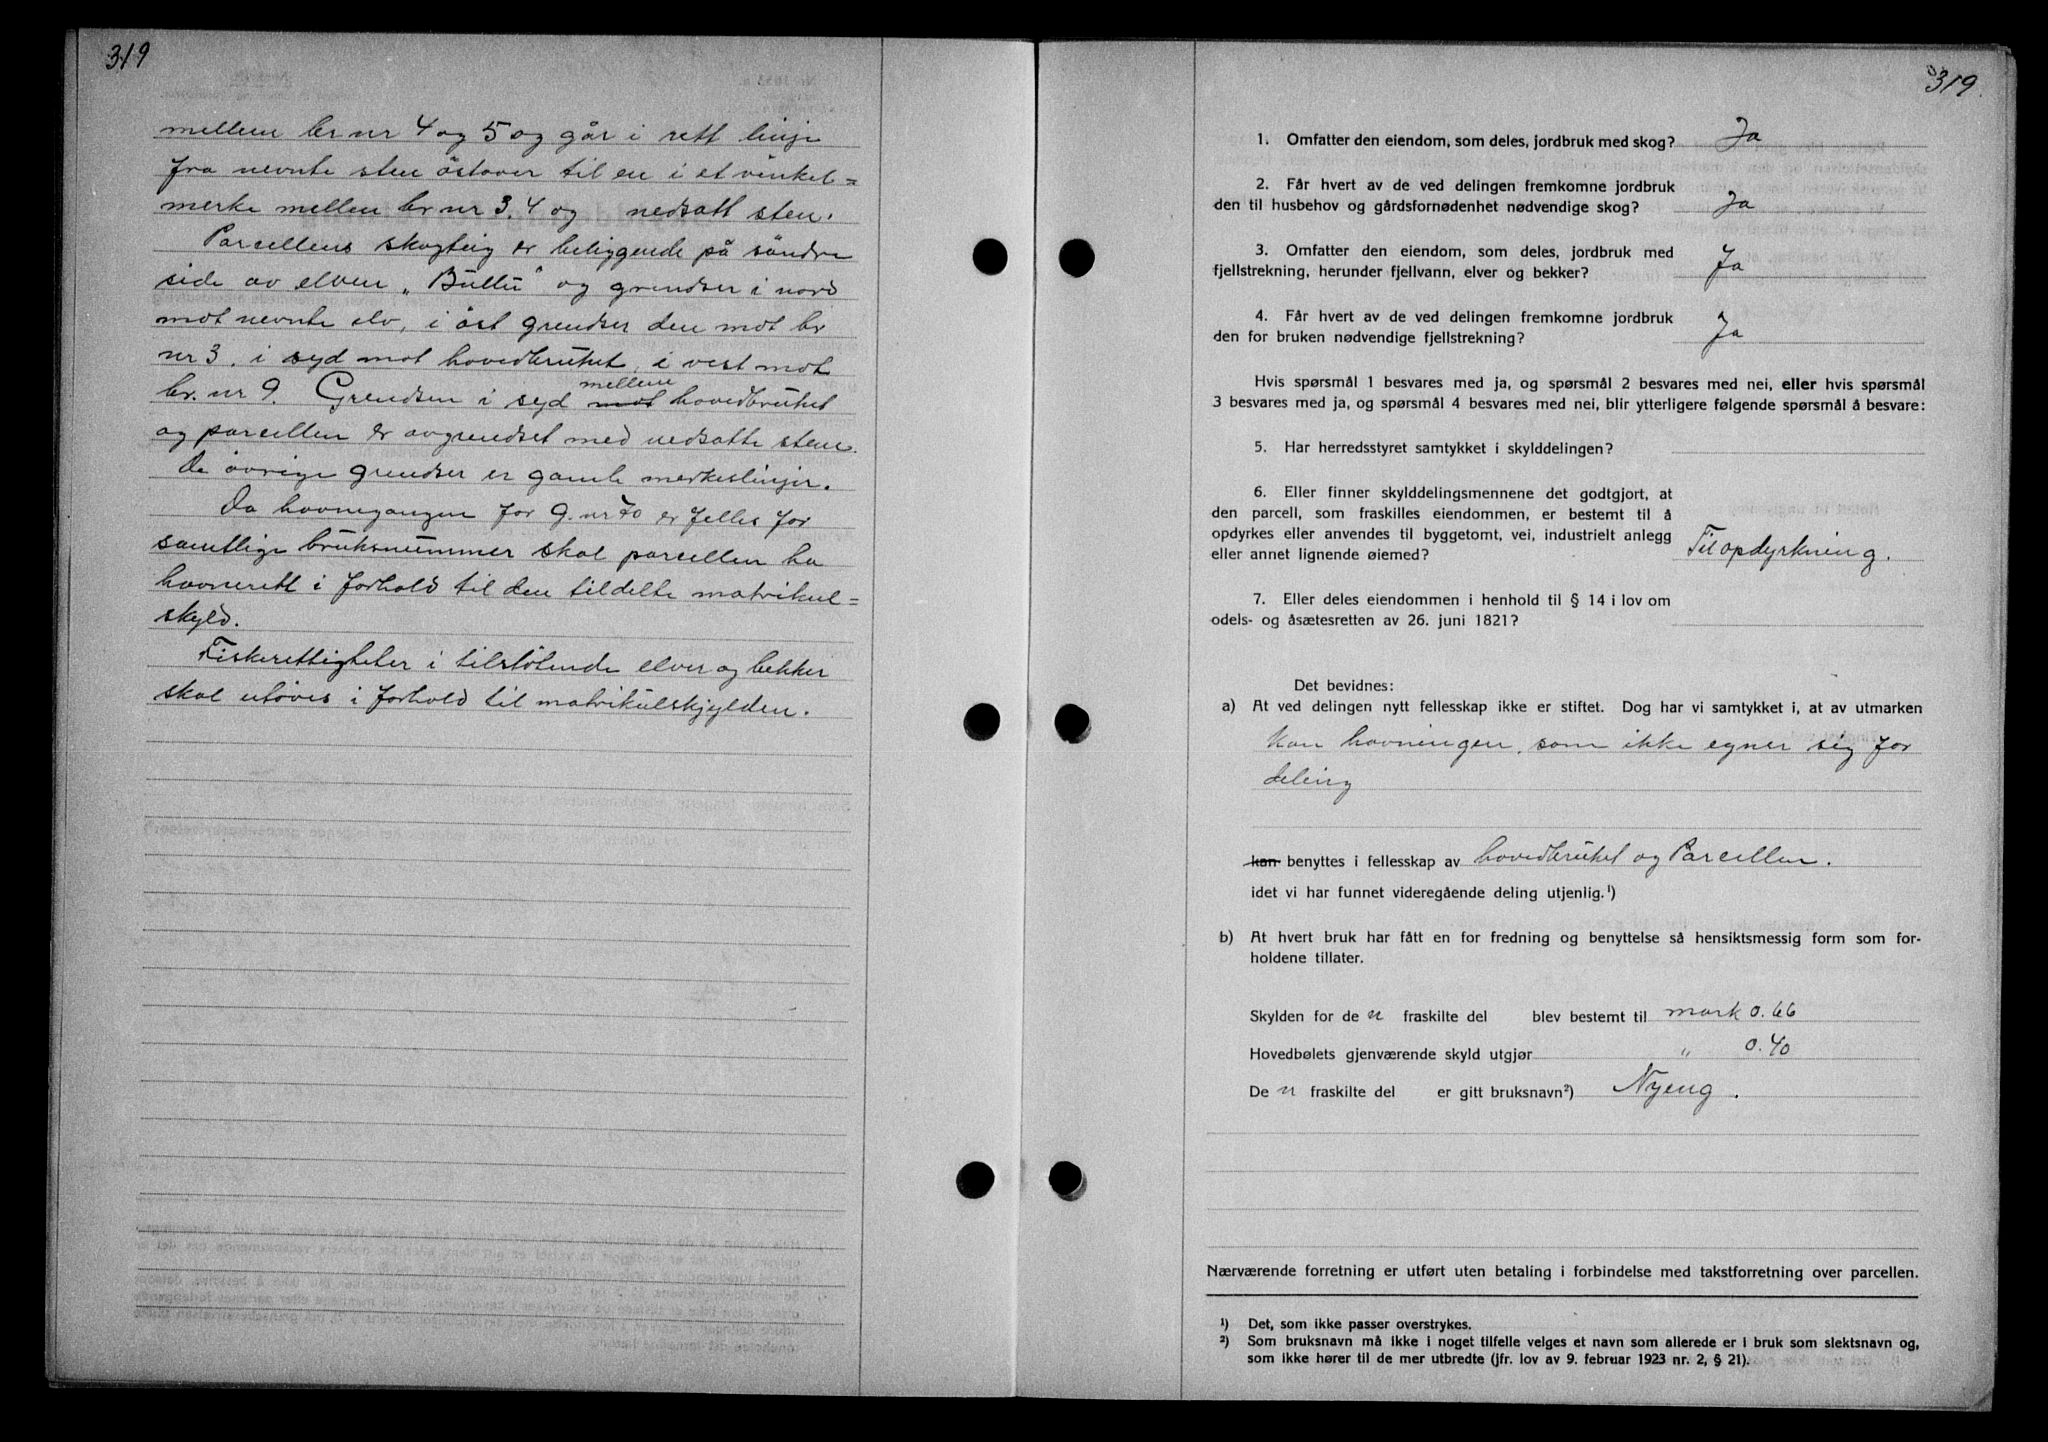 319
mellem br nr 4 og 5 og går i rett linje
fra nevnte sten östover til en i et vinkel=
merke mellem br nr 3, 4 og nedsatt sten.
Parcellens skogteig er beliggende på söndre
side av elven „Bullu" og grendser i nord
mot nevnte elv, i öst grendser den mot br
nr 3, i syd mot hovedbruket, i vest mot
br. nr 9. Grendsen i syd mot mellem hovedbruket
og parcellen er avgrendset med nedsatte stene.
De övrige grendser er gamle merkeslinjer.
Da havnegangen for g. nr 70 er felles for
samtlige bruksnummer skal parcellen ha
havnerett i forhold til den tildelte matrikul=
skyld.
Fiskerettigheter i tilstötende elver og bekker
skal utöves i forhold til matrikulskjylden.
319.
1. Omfatter den eiendom, som deles, jordbruk med skog? Ja
2. Får hvert av de ved delingen fremkomne jordbruk
den til husbehov og gårdsfornødenhet nødvendige skog? Ja
3. Omfatter den eiendom, som deles, jordbruk med
fjellstrekning, herunder fjellvann, elver og bekker? Ja
4. Får hvert av de ved delingen fremkomne jordbruk
den for bruken nødvendige fjellstrekning? Ja
Hvis spørsmål 1 besvares med ja, og spørsmål 2 besvares med nei, eller hvis spørsmål
3 besvares med ja, og spørsmål 4 besvares med nei, blir ytterligere følgende spørsmål å besvare:
5. Har herredsstyret samtykket i skylddelingen?
6. Eller finner skylddelingsmennene det godtgjort, at
den parcell, som fraskilles eiendommen, er bestemt til å
opdyrkes eller anvendes til byggetomt, vei, industrielt anlegg
eller annet lignende øiemed? Til opdyrkning.
7. Eller deles eiendommen i henhold til § 14 i lov om
odels- og åsætesretten av 26. juni 1821?
Det bevidnes:
a) At ved delingen nytt fellesskap ikke er stiftet. Dog har vi samtykket i, at av utmarken
kan havningen, som ikke egner sig for
deling
kan benyttes i fellesskap av hovedbruket og Parcellen.
idet vi har funnet videregående deling utjenlig.¹)
b) At hvert bruk har fått en for fredning og benyttelse så hensiktsmessig form som for-
holdene tillater.
Skylden for de n fraskilte del blev bestemt til mark 0.66
Hovedbølets gjenværende skyld utgjør " 0.40
De n fraskilte del er gitt bruksnavn²) Nyeng.
Nærværende forretning er utført uten betaling i forbindelse med takstforretning over parcellen.
¹) Det, som ikke passer overstrykes.
²) Som bruksnavn må ikke i noget tilfelle velges et navn som allerede er i bruk som slektsnavn og,
som ikke hører til de mer utbredte (jfr. lov av 9. februar 1923 nr. 2, § 21).